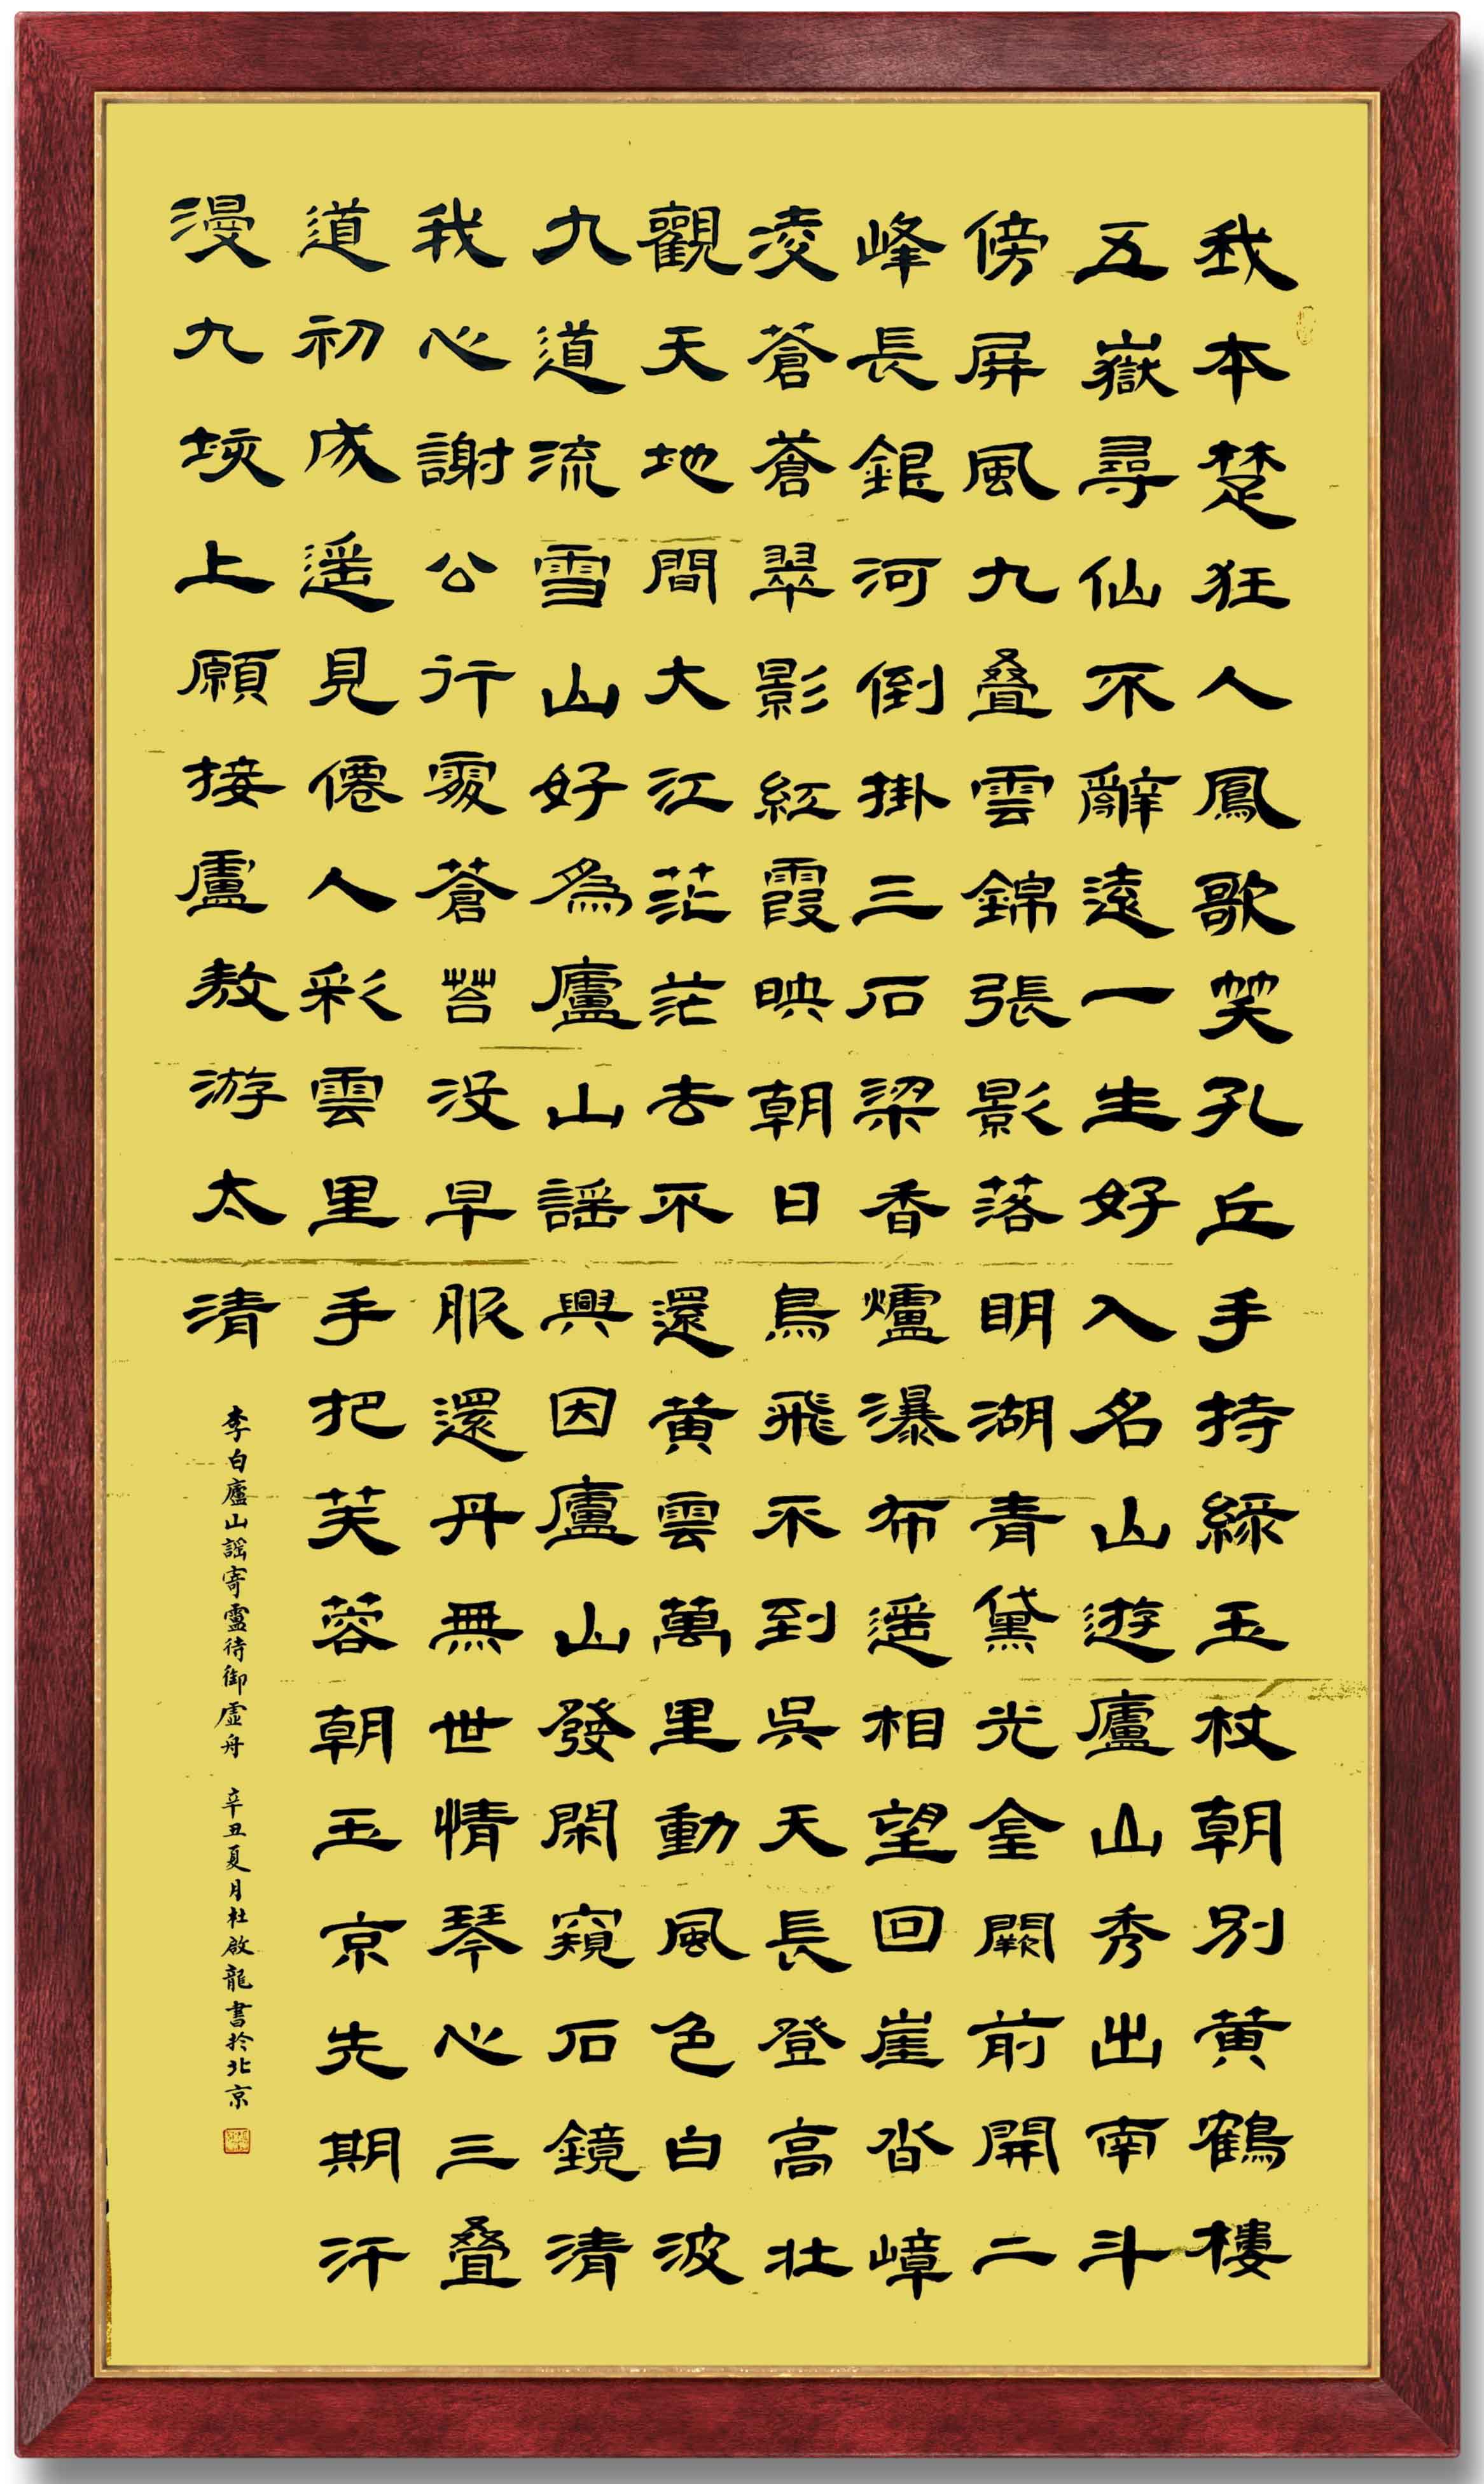 我本楚狂人鳳歌笑孔丘手持綠玉杖朝别黄鶴樓
五嶽尋仙不辭遠一生好入名山遊廬山秀出南斗
傍屏風九叠雲錦張影落明湖青黛光金闕前開二
峰長銀河倒掛三石梁香爐瀑布遥相望回崖沓嶂
凌蒼蒼翠影紅霞映朝日鳥飛不到吳天長登高壯
觀天地間大江茫茫去不還黄雲萬里動風色白波
九道流雪山好為廬山謡興因廬山發閑窺石鏡清
我心謝公行處蒼苔没早服還丹無世情琴心三叠
道初成遥見僊人彩雲里手把芙蓉朝玉京先期汗
漫九垓上願接盧敖游太清
李白廬山謡寄盧待御虚舟 辛丑夏月杜啟龍書於北京